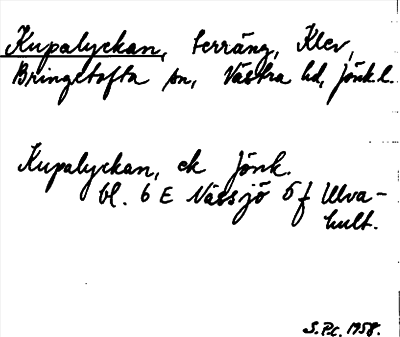 Kupalyckan, terräng, Klev,
Bringetofta sn, Västra hd, Jönk.l.
Kupalyckan, ek Jönk.
bl. 6 E Nässjö 5 f Ulva-
hult.
S.Pc. 1958.